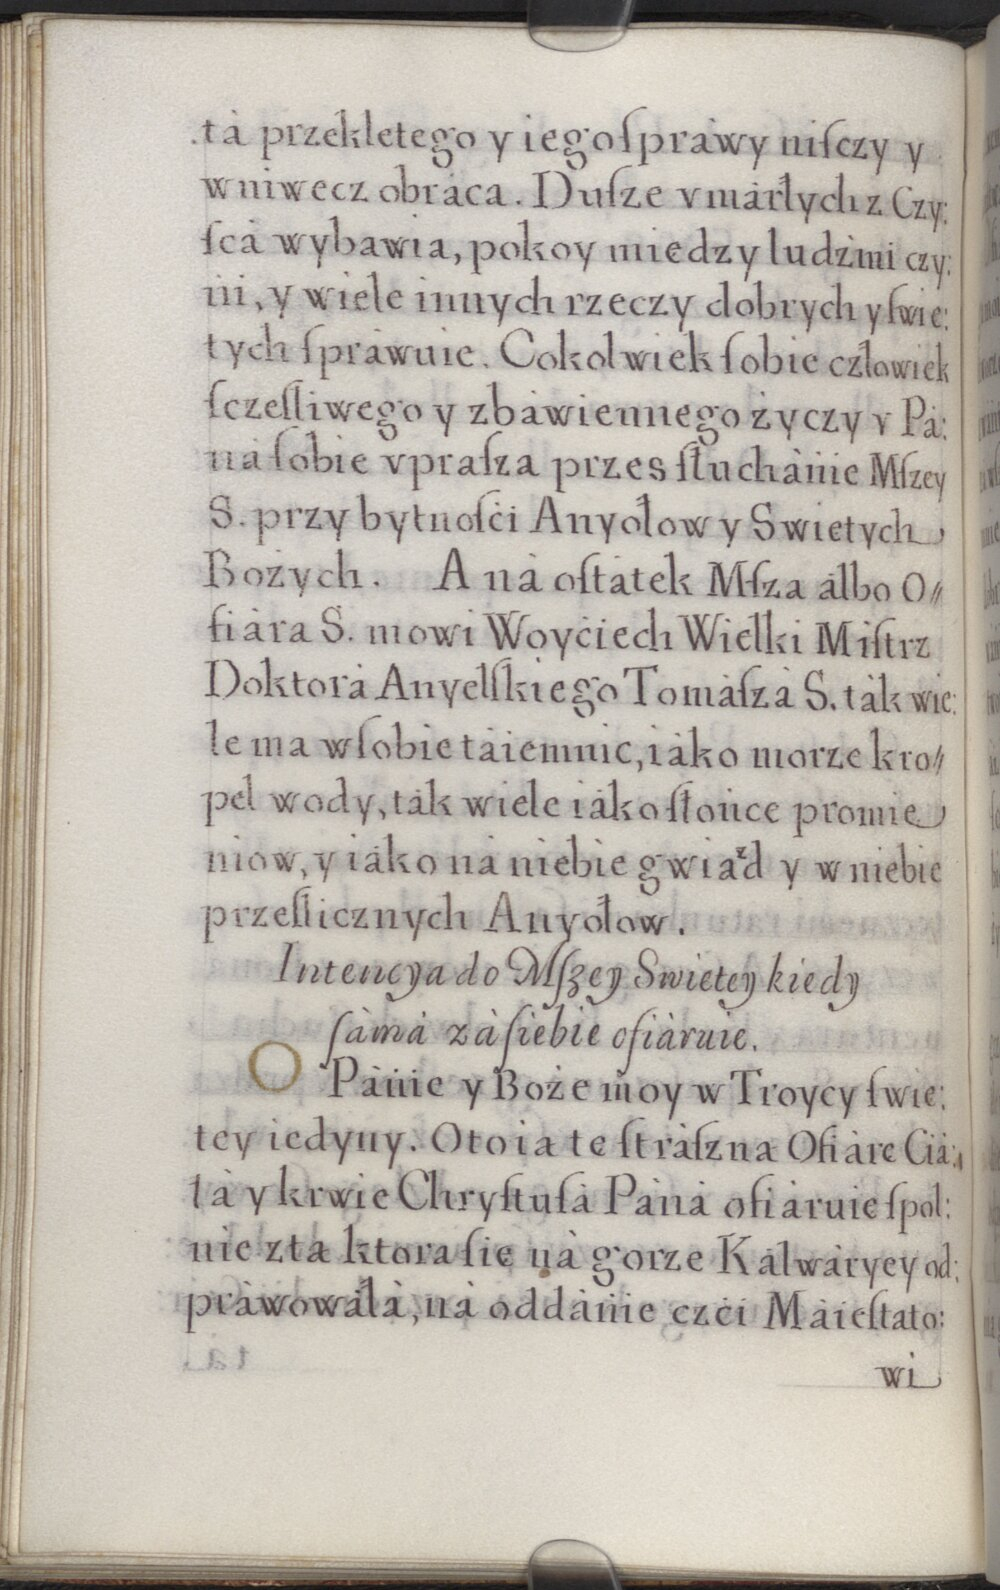 tà przekletego y iego ſpràwy niſczy y
w niwecz obràca. Duſze vmàrłych z Czy:
ſcà wybawia, pokoy miedzy ludźmi czy:
ni, y wiele innych rzeczy dobrych y ſwie:
tych ſpràwuie. Cokolwiek ſobie człowiek
ſczeſliwego y zbàwiennego życzy v Pà:
nà ſobie vpraſza przes ſłuchànie Mſzey
S. przy bytnoſci Anyołow y Swietych
Bożych. A nà oſtàtek Mſza àlbo O//
fiàra S. mowi Woyciech Wielki Miſtrz
Doktorà Anyelſkiego Tomàſzà S. tàk wie:
le ma w ſobie tàiemnic, iàko morze kro//
pel wody, tàk wiele iàko ſłońce promie
niow, y iàko nà niebie gwiazd y w niebie
przeſlicznych Anyołow.
Intencya do Mſzey Swietey kiedy
ſàmà zà ſiebie ofiàruie.
O Pànie y Boże moy w Troycy ſwie:
tey iedyny. Oto ia te ſtràſzna Ofiàre Cià:
łà y krwie Chryſtuſà Pànà ofiàruie ſpol:
nie z ta ktora ſie nà gorze Kàlwàryey od:
pràwowàłà, nà oddànie czci Màieſtato:
wi